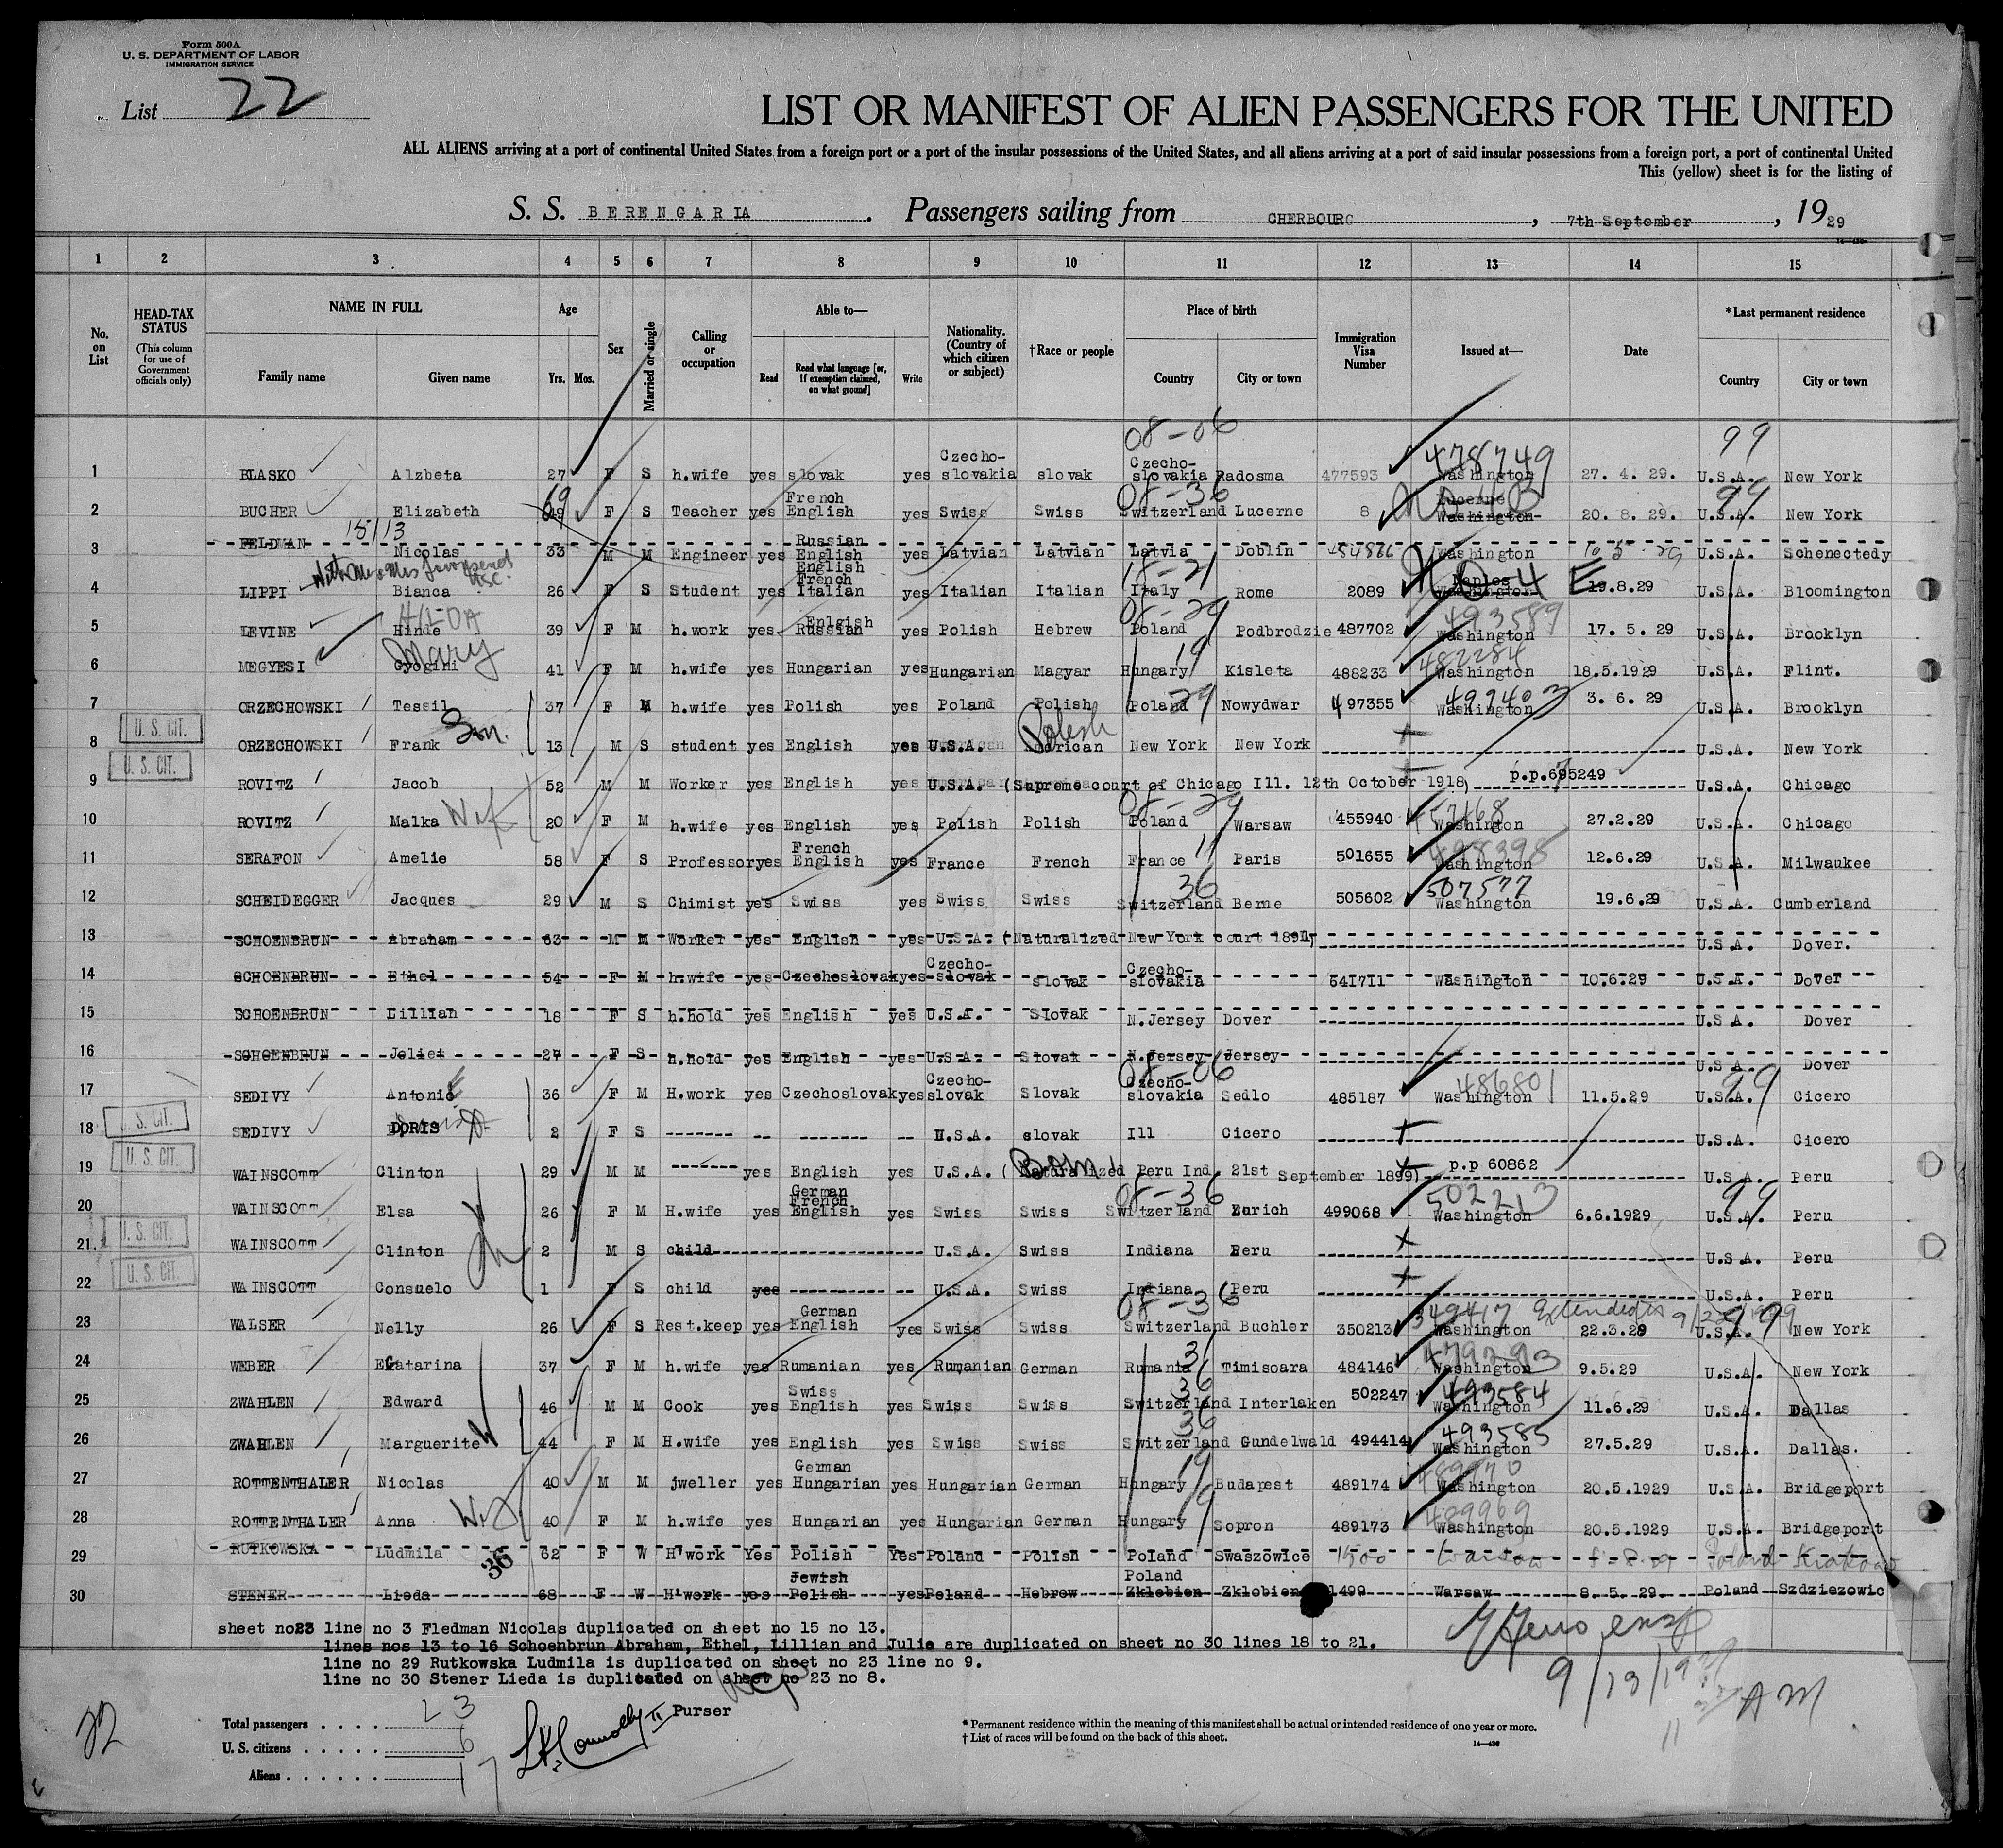 Form 500A
U. S. DEPARTMENT OF LABOR
IMMIGRATION SERVICE
List 22
LIST OR MANIFEST OF ALIEN PASSENGERS FOR THE UNITED
ALL ALIENS arriving at a port of continental United States from a foreign port or a port of the insular possessions of the United States, and all aliens arriving at a port of said insular possessions from a foreign port, a port of continental United
This (yellow) sheet is for the listing of
S. S. BERENGARIA. Passengers sailing from CHERBOURG, 7th September, 1929
14—430
1 2 3 4 5 6 7 8 9 10 11 12 13 14 15
No. on List
HEAD-TAX STATUS
(This column for use of Government officials only)
NAME IN FULL
Family name Given name
Age
Yrs. Mos.
Sex
Married or single
Calling or occupation
Able to—
Read Read what language [or, if exemption claimed, on what ground] Write
Nationality. (Country of which citizen or subject)
†Race or people
Place of birth
Country City or town
Immigration Visa Number
Issued at—
Date
*Last permanent residence
Country City or town
08-06 99
1 BLASKO Alzbeta 27 F S h.wife yes slovak yes Czecho-slovakia slovak Czecho-slovakia Radosma 477593 478749 Washington 27. 4. 29. U.S.A. New York
08-36 99
2 BUCHER Elizabeth 49 69 F S Teacher yes French English yes Swiss Swiss Switzerland Lucerne 8 Lucerne Washington 20. 8. 29. U.S.A. New York
15/13
3 FELDMAN Nicolas 33 M M Engineer yes Russian English yes Latvian Latvian Latvia Doblin Washington 10 5 29 U.S.A. Schenectedy
18-21
4 LIPPI Bianca 26 F S Student yes English French Italian yes Italian Italian Italy Rome 2089 Naples Washington ND-4 E 19.8.29 U.S.A. Bloomington
HILDA 08-29
5 LEVINE Hinde 39 F M h.work yes Enlgish Russian yes Polish Hebrew Poland Podbrodzie 487702 493589 Washington 17. 5. 29 U.S.A. Brooklyn
Mary 19
6 MEGYESI Gyogini 41 F M h.wife yes Hungarian yes Hungarian Magyar Hungary Kisleta 488233 482284 Washington 18.5.1929 U.S.A. Flint.
7 ORZECHOWSKI Tessil 37 F M h.wife yes Polish yes Poland Polish Poland 29 Nowydwar 497355 499403 Washington 3. 6. 29 U.S.A. Brooklyn
U. S. CIT.
8 ORZECHOWSKI Frank Son. 13 M S student yes English yes U.S.A. American Polish New York New York U.S.A. New York
U. S. CIT.
9 ROVITZ Jacob 52 M M Worker yes English yes U.S.A. (Supreme court of Chicago Ill. 12th October 1918) p.p.695249 U.S.A. Chicago
08-29
10 ROVITZ Malka Wf 20 F M h.wife yes English yes Polish Polish Poland Warsaw 455940 Washington 27.2.29 U.S.A. Chicago
11 SERAFON Amelie 58 F S Professor yes French English yes France French France 11 Paris 501655 498398 Washington 12.6.29 U.S.A. Milwaukee
36
12 SCHEIDEGGER Jacques 29 M S Chimist yes Swiss yes Swiss Swiss Switzerland Berne 505602 507577 Washington 19.6.29 U.S.A. Cumberland
13 SCHOENBRUN Abraham 63 M M Worker yes English yes U.S.A. (Naturalized New York court 1891) U.S.A. Dover.
14 SCHOENBRUN Ethel 54 F M h.wife yes Czechoslovak yes Czecho-slovak slovak Czecho-slovakia 541711 Washington 10.6.29 U.S.A. Dover
15 SCHOENBRUN Lillian 18 F S h.hold yes English yes U.S.A. Slovak N.Jersey Dover U.S.A. Dover
16 SCHOENBRUN Joliet 27 F S h.hold yes English yes U.S.A. Slovak N.Jersey Jersey U.S.A. Dover
08-06 99
17 SEDIVY Antonie 36 F M H.work yes Czechoslovak yes Czecho-slovak Slovak Czecho-slovakia Sedlo 485187 486801 Washington 11.5.29 U.S.A. Cicero
U. S. CIT.
18 SEDIVY DORIS 2 F S U.S.A. slovak Ill Cicero U.S.A. Cicero
U. S. CIT.
19 WAINSCOTT Clinton 29 M M yes English yes U.S.A. (Naturalized Born Peru Ind. 21st September 1899) p.p 60862 U.S.A. Peru
08-36 99
20 WAINSCOTT Elsa 26 F M H.wife yes German French English yes Swiss Swiss Switzerland Zurich 499068 502213 Washington 6.6.1929 U.S.A. Peru
U. S. CIT.
21. WAINSCOTT Clinton 2 M S child U.S.A. Swiss Indiana Peru U.S.A. Peru
U. S. CIT.
22 WAINSCOTT Consuelo 1 F S child yes U.S.A. Swiss Indiana Peru U.S.A. Peru
08-36
23 WALSER Nelly 26 F S Rest.keep yes German English yes Swiss Swiss Switzerland Buchler 350213 349417 Washington Extended to 22.3.29 U.S.A. 99 New York
24 WEBER Ecatarina 37 F M h.wife yes Rumanian yes Rumanian German Rumania 31 Timisoara 484146 479293 Washington 9.5.29 U.S.A. New York
36
25 ZWAHLEN Edward 46 M M Cook yes Swiss English yes Swiss Swiss Switzerland Interlaken 502247 493584 Washington 11.6.29 U.S.A. Dallas
36
26 ZWAHLEN Marguerite W 44 F M H.wife yes English yes Swiss Swiss Switzerland Gundelwald 494414 493585 Washington 27.5.29 U.S.A. Dallas.
19
27 ROTTENTHALER Nicolas 40 M M jweller yes German Hungarian yes Hungarian German Hungary Budapest 489174 489970 Washington 20.5.1929 U.S.A. Bridgeport
19
28 ROTTENTHALER Anna Wf 40 F M h.wife yes Hungarian yes Hungarian German Hungary Sopron 489173 489969 Washington 20.5.1929 U.S.A. Bridgeport
29 RUTKOWSKA Ludmila 62 F W H'work Yes Polish Yes Poland Polish Poland Swaszowice 1500 Warsaw Poland Krakow
36
30 STENER Lieda 68 F W H'work yes Jewish Polish yes Poland Hebrew Poland Zklobien Zklobien 1499 Warsaw 8. 5. 29. Poland Szdziezowic
sheet no23 line no 3 Fledman Nicolas duplicated on sheet no 15 no 13.
lines nos 13 to 16 Schoenbrun Abraham, Ethel, Lillian and Julie are duplicated on sheet no 30 lines 18 to 21.
line no 29 Rutkowska Ludmila is duplicated on sheet no 23 line no 9.
line no 30 Stener Lieda is duplicated on sheet no 23 no 8.
9/13/1929
11 AM
22
Purser
Total passengers . . . . 23
U. S. citizens . . . . . 6
Aliens . . . . . . 17
*Permanent residence within the meaning of this manifest shall be actual or intended residence of one year or more.
†List of races will be found on the back of this sheet.
14—430